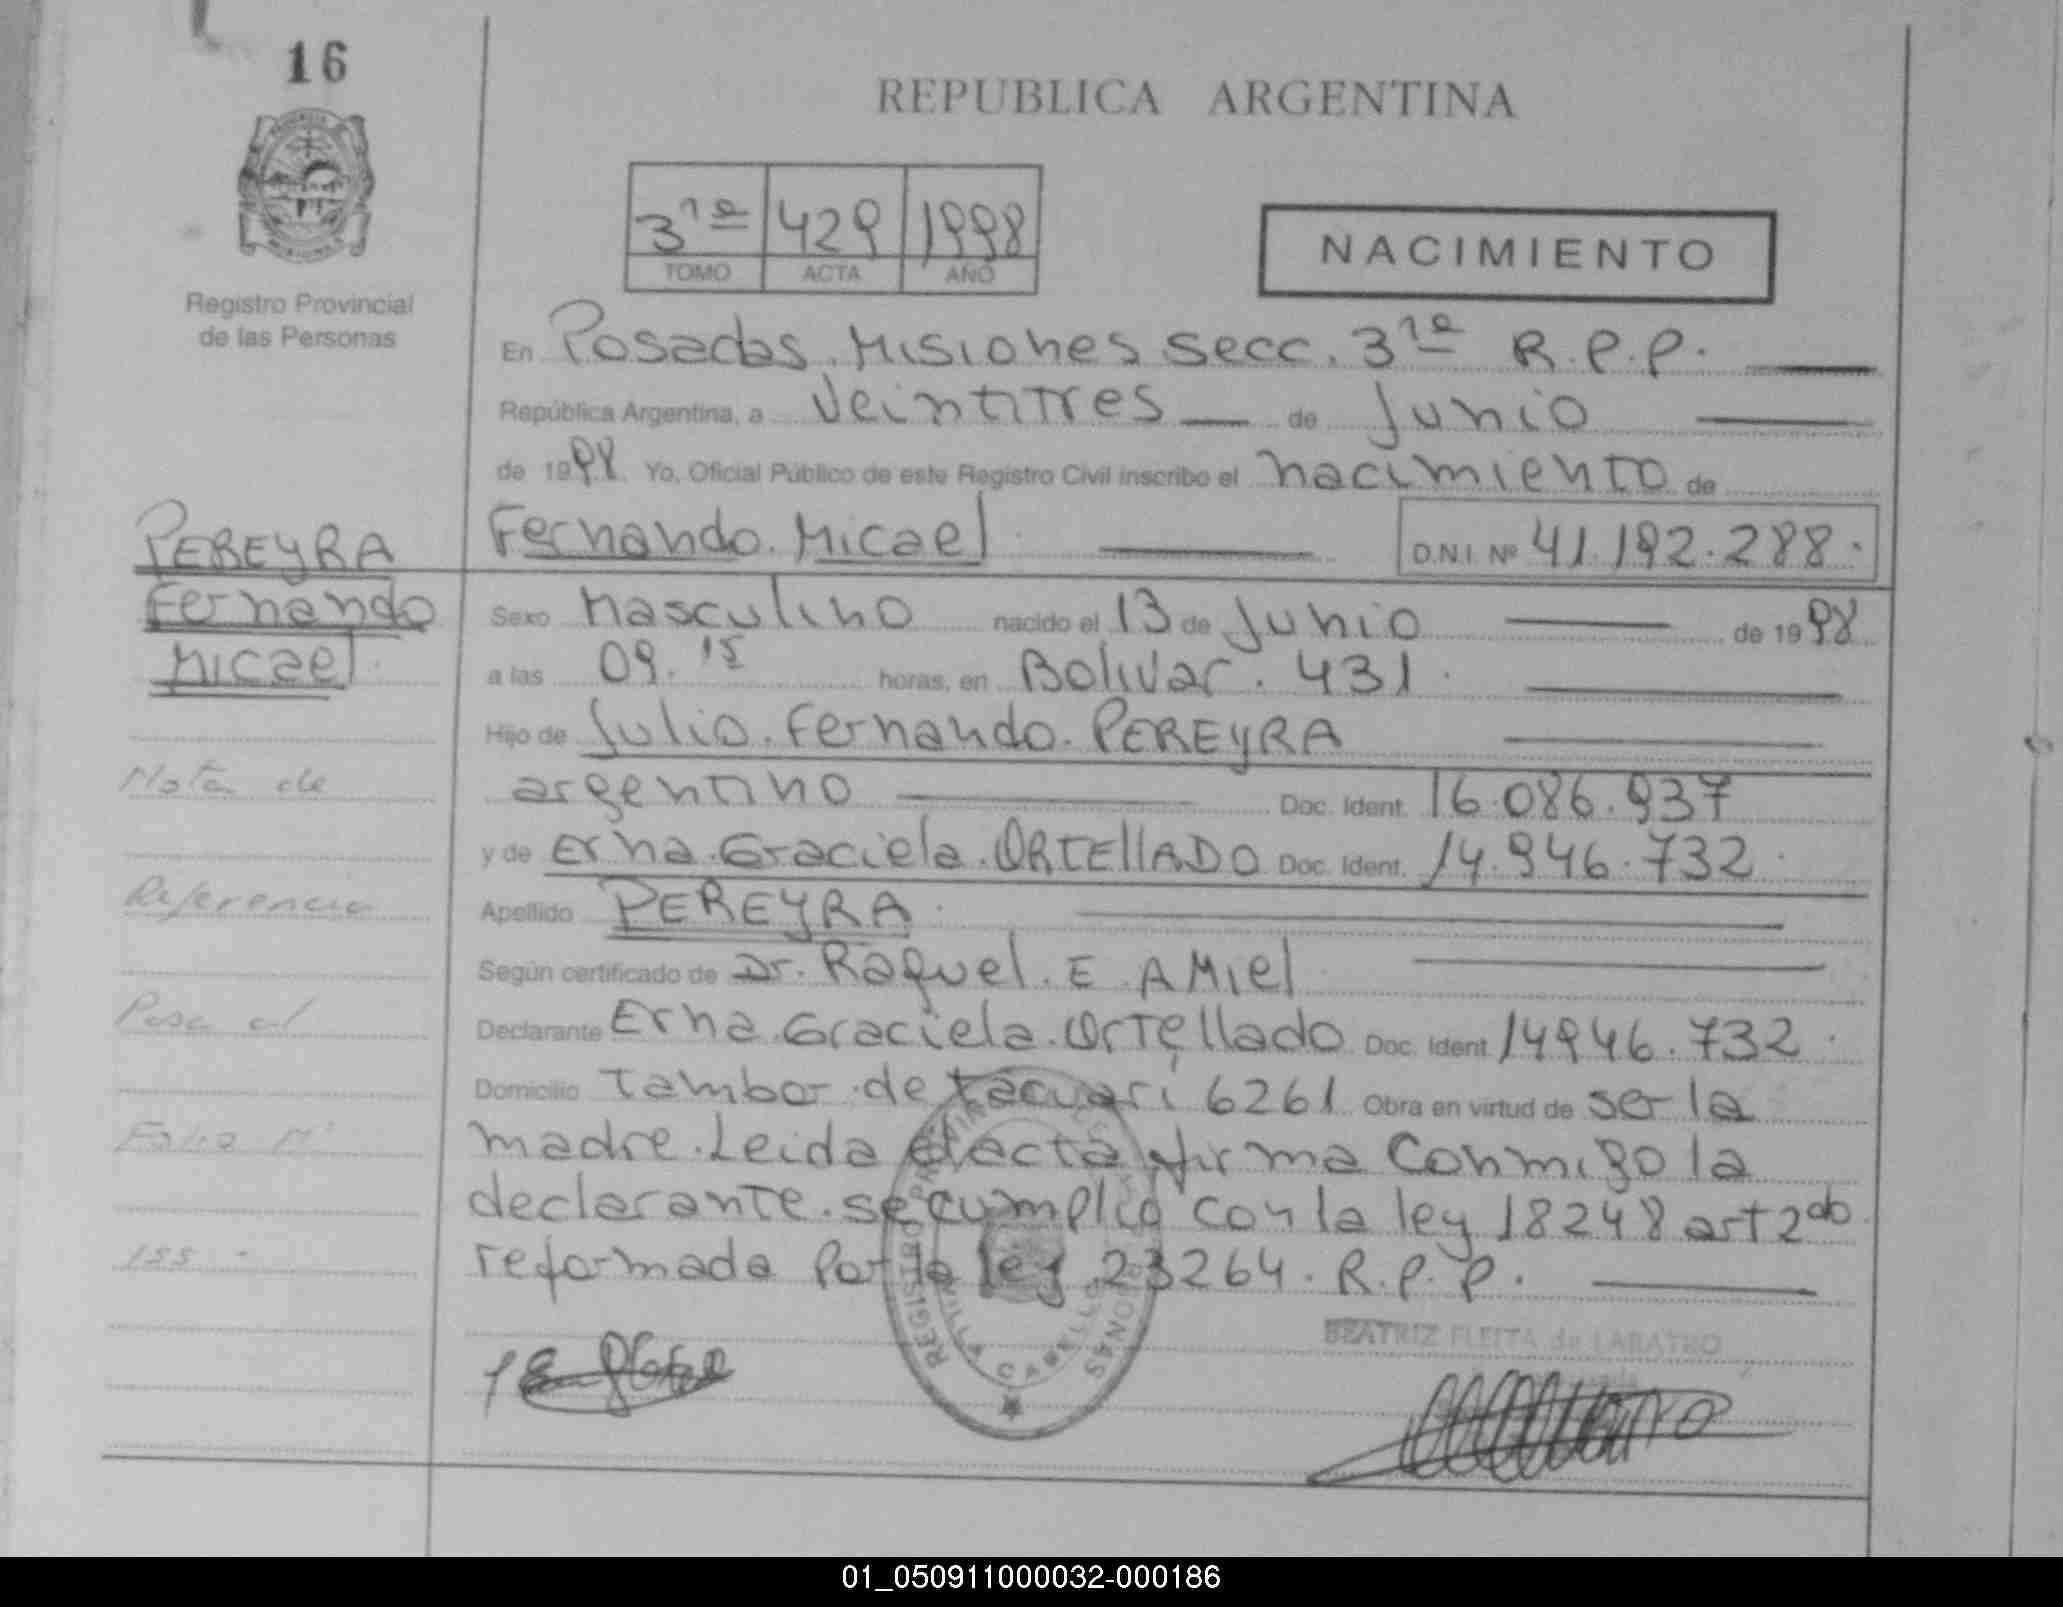 16
REPUBLICA ARGENTINA
3ra 429 1998
TOMO ACTA AÑO
NACIMIENTO
Registro Provincial
de las Personas
En Posadas. Misiones secc. 3ra R.P.P.
República Argentina, a veintitres de Junio
de 1998 Yo, Oficial Público de este Registro Civil inscribo el nacimiento de
Fernando. Micael D.N.I. Nº 41.192.288.
PEREYRA
Fernando
Micael
Sexo Masculino nacido el 13 de Junio de 1998
a las 09.15 horas, en Bolivar. 431.
Hijo de Julio. Fernando. PEREYRA
argentino Doc. Ident. 16.086.937
y de Erna. Graciela. ORTEllADO Doc. Ident. 14.946.732.
Apellido PEREYRA.
Según certificado de Dr. Raquel. E. AMiel
Declarante Erna. Graciela. Ortellado Doc. Ident. 14946.732.
Domicilio Tambor de tacuari 6261 Obra en virtud de ser la
madre. Leida el acta firma conmigo la
declarante. se cumplio con la ley 18248 art 2do
reformada por la ley 23264. R.P.P.
Nota de
Referencia
Pasa al
Folio Nº
155 -
REGISTRO PROVINCIAL DE LAS PERSONAS
VILLA CABELLO
BEATRIZ FLEITA de LABATRO
01_050911000032-000186